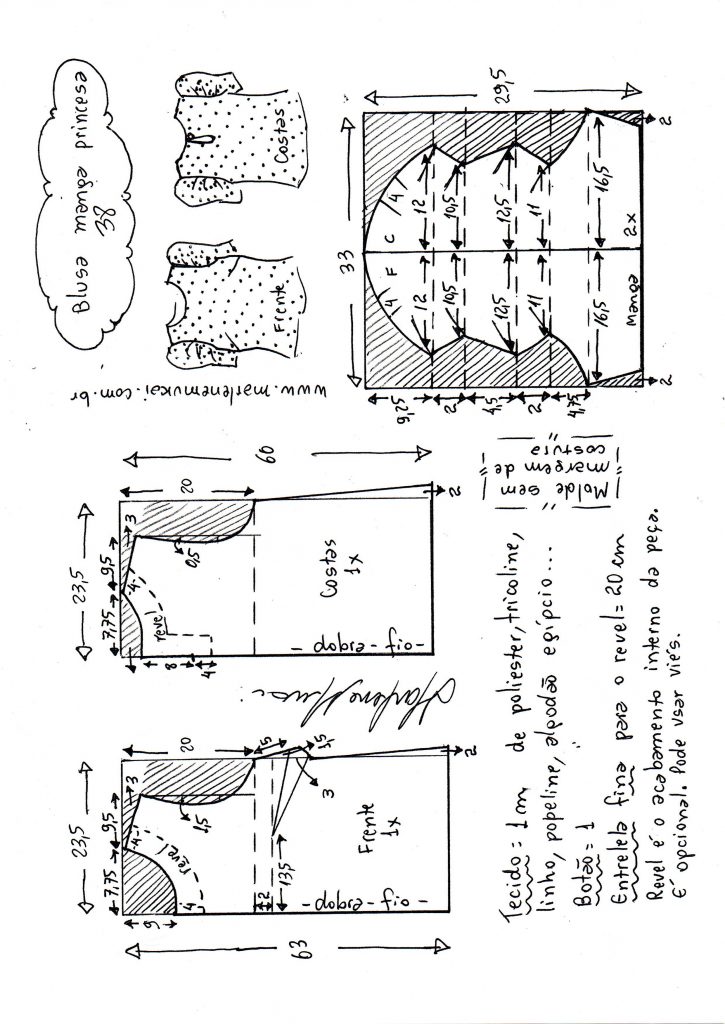 Blusa manga princesa
38
Frente
Costas
www.marlenemukai.com.br
33
29,5
C
F
4
4
12
12
10,5
10,5
12,5
12,5
11
11
16,5
16,5
Manga
2x
9,25
2
4,5
2
4,75
2
2
23,5
7,75
9,5
3
4
revel
20
60
0,5
8
4
Costas
1x
-dobra-fio-
2
23,5
7,75
9,5
3
4
revel
20
63
9
4
1,5
5
1,5
3
2
13,5
Frente
1x
-dobra-fio-
2
Molde sem
margem de
costura
Tecido = 1 m, de poliester, tricoline,
linho, popeline, algodão egípcio...
Botão = 1
Entretela fina para o revel = 20 cm
Revel é o acabamento interno da peça.
É opcional. Pode usar viés.